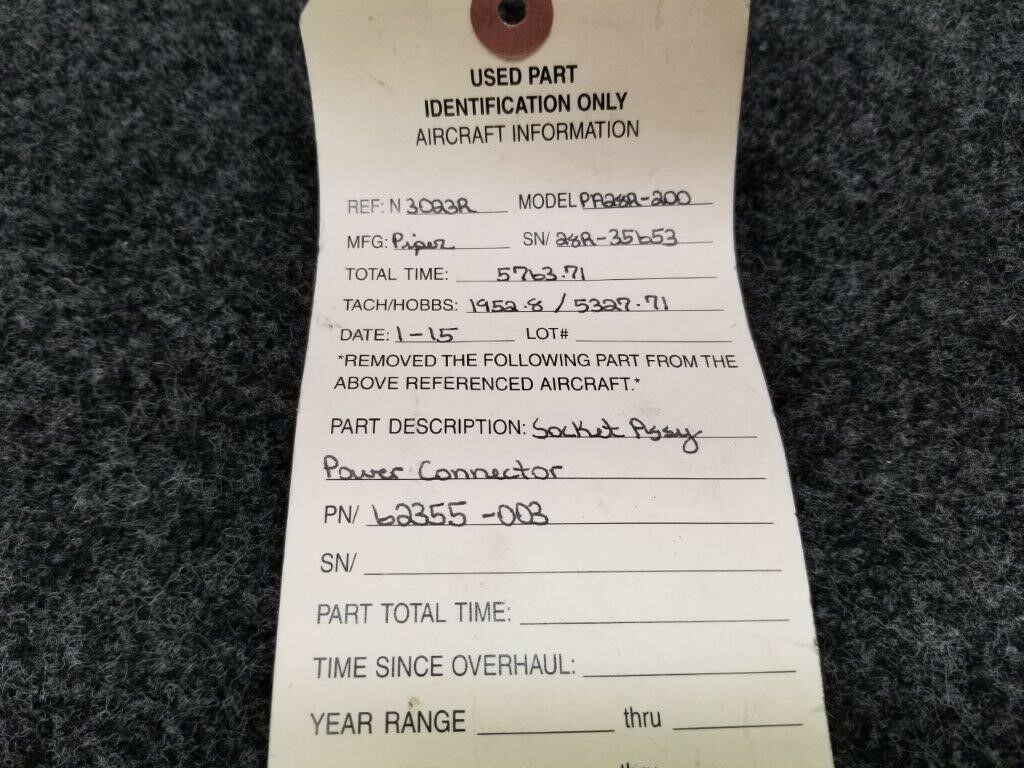 USED PART
IDENTIFICATION ONLY
AIRCRAFT INFORMATION
REF: N 3023R MODEL PA28R-200
MFG: Piper SN/ 28R-35653
TOTAL TIME: 5763.71
TACH/HOBBS: 1952.8 / 5327.71
DATE: 1-15 LOT#
*REMOVED THE FOLLOWING PART FROM THE
ABOVE REFERENCED AIRCRAFT.*
PART DESCRIPTION: Socket Assy
Power Connector
PN/ 62355-003
SN/
PART TOTAL TIME:
TIME SINCE OVERHAUL:
YEAR RANGE thru